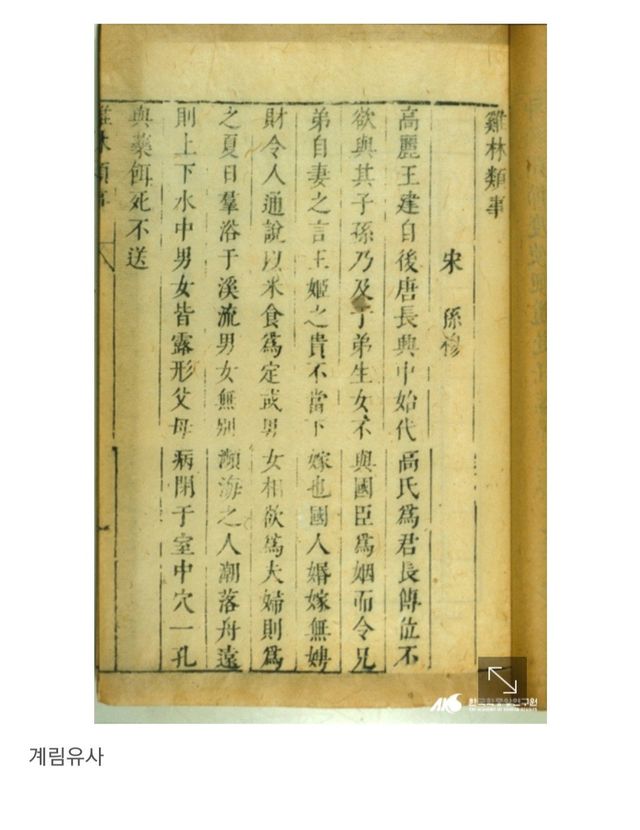 雞林類事
宋 孫穆
高麗王建自後唐長興中始代高氏爲君長傳位不
欲與其子孫乃及于弟生女不與國臣爲姻而令兄
弟自妻之言王姬之貴不當下嫁也國人婚嫁無娉
財令人通說以米食爲定或男女相欲爲夫婦則爲
之夏日羣浴于溪流男女無別瀕海之人潮落舟遠
則上下水中男女皆露形父母病閉于室中穴一孔
與藥餌死不送
雞林類事
한국학중앙연구원
계림유사